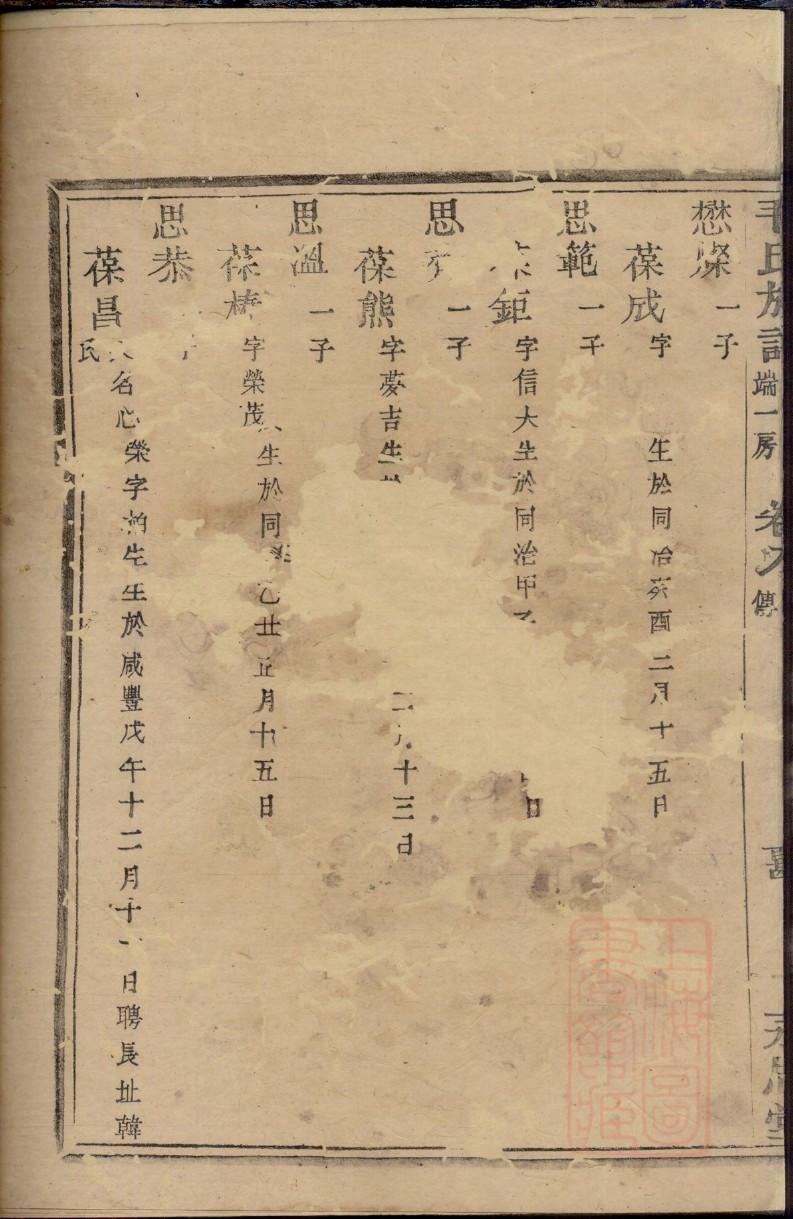 毛氏族譜 端一房 卷 傳
懋燦 一子
葆成 字 生於同治癸酉二月十五日
思範 一子
鉅 字信大生於同治甲 日
思 一子
葆熊 字夢吉生 二月十三日
思溫 一子
葆 字榮茂 生於同 乙丑正月十五日
思恭
葆昌 名心榮字柏生生於咸豐戊午十二月十 日聘長址韓
氏
上海圖書館藏